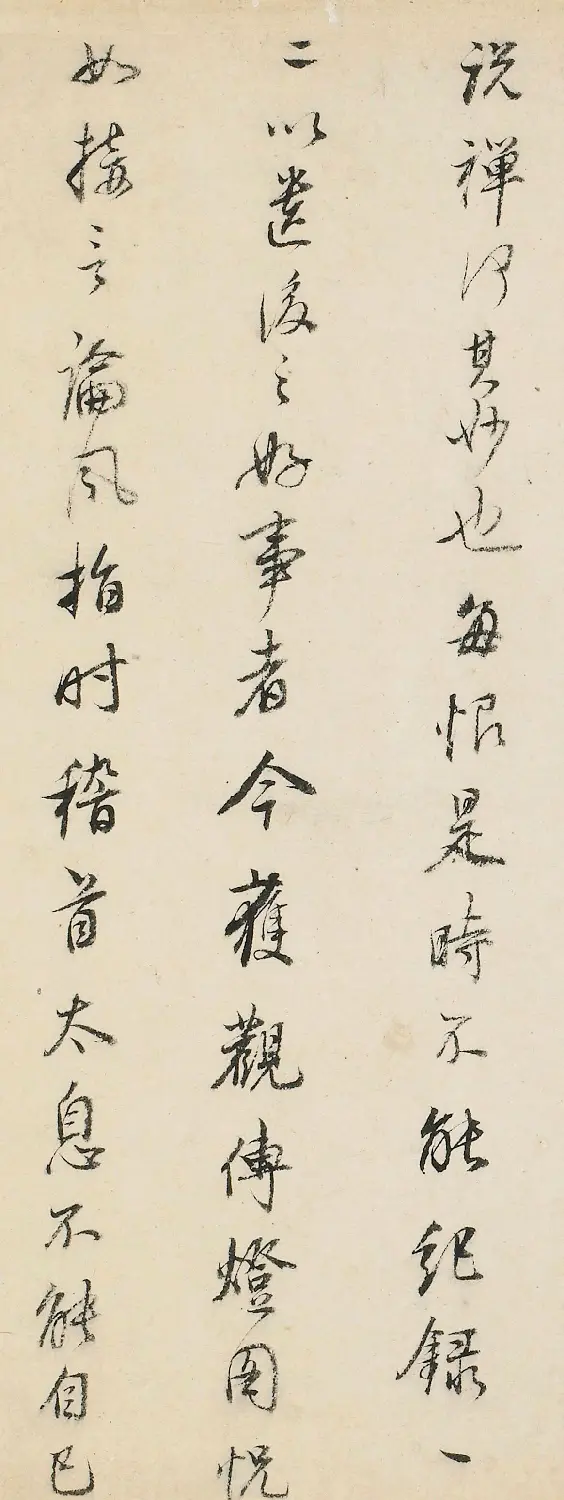 说禅何其妙也每恨是時不能紀録一
二以遺後之好事者今獲觀傳燈図怳
如接言論風指时稽首太息不能自已